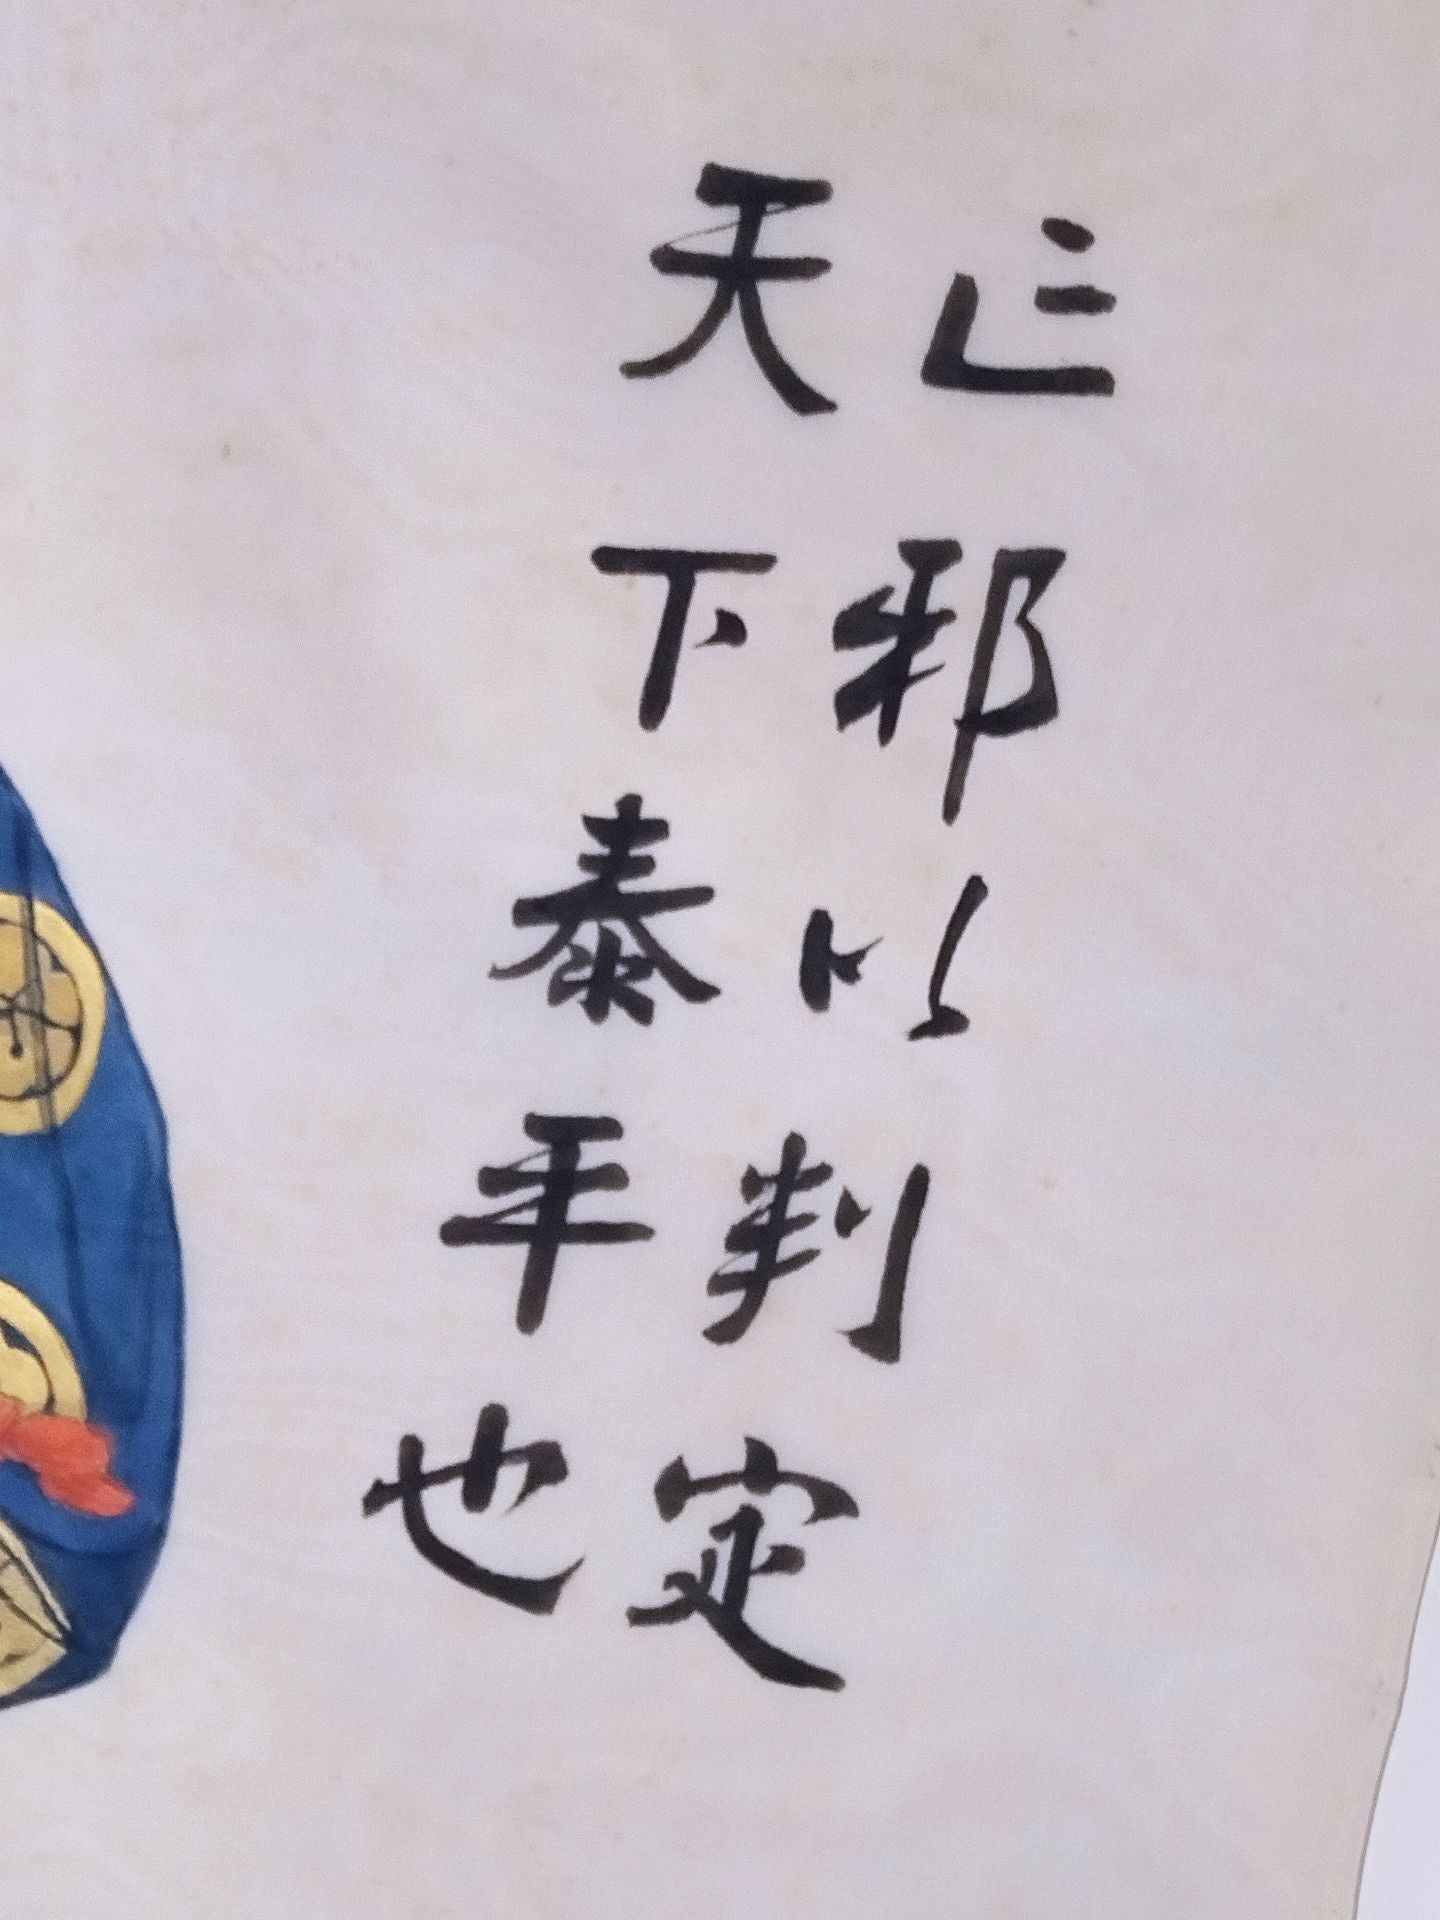 正邪以判定
天下泰平也